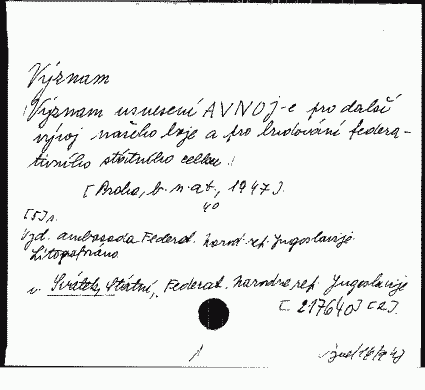 Význam
Význam usnesení AVNOJ-e pro další
vývoj našeho boje a pro budování federa-
tivního státního celku.
[Praha, b.n. a t., 1947].
40
[5] s.
Vyd. ambasada Federat. narod. rep. Jugoslavije
Litografováno
v. Svátek, Státní, Federat. Narodna rep. Jugoslavije
[217640] [2].